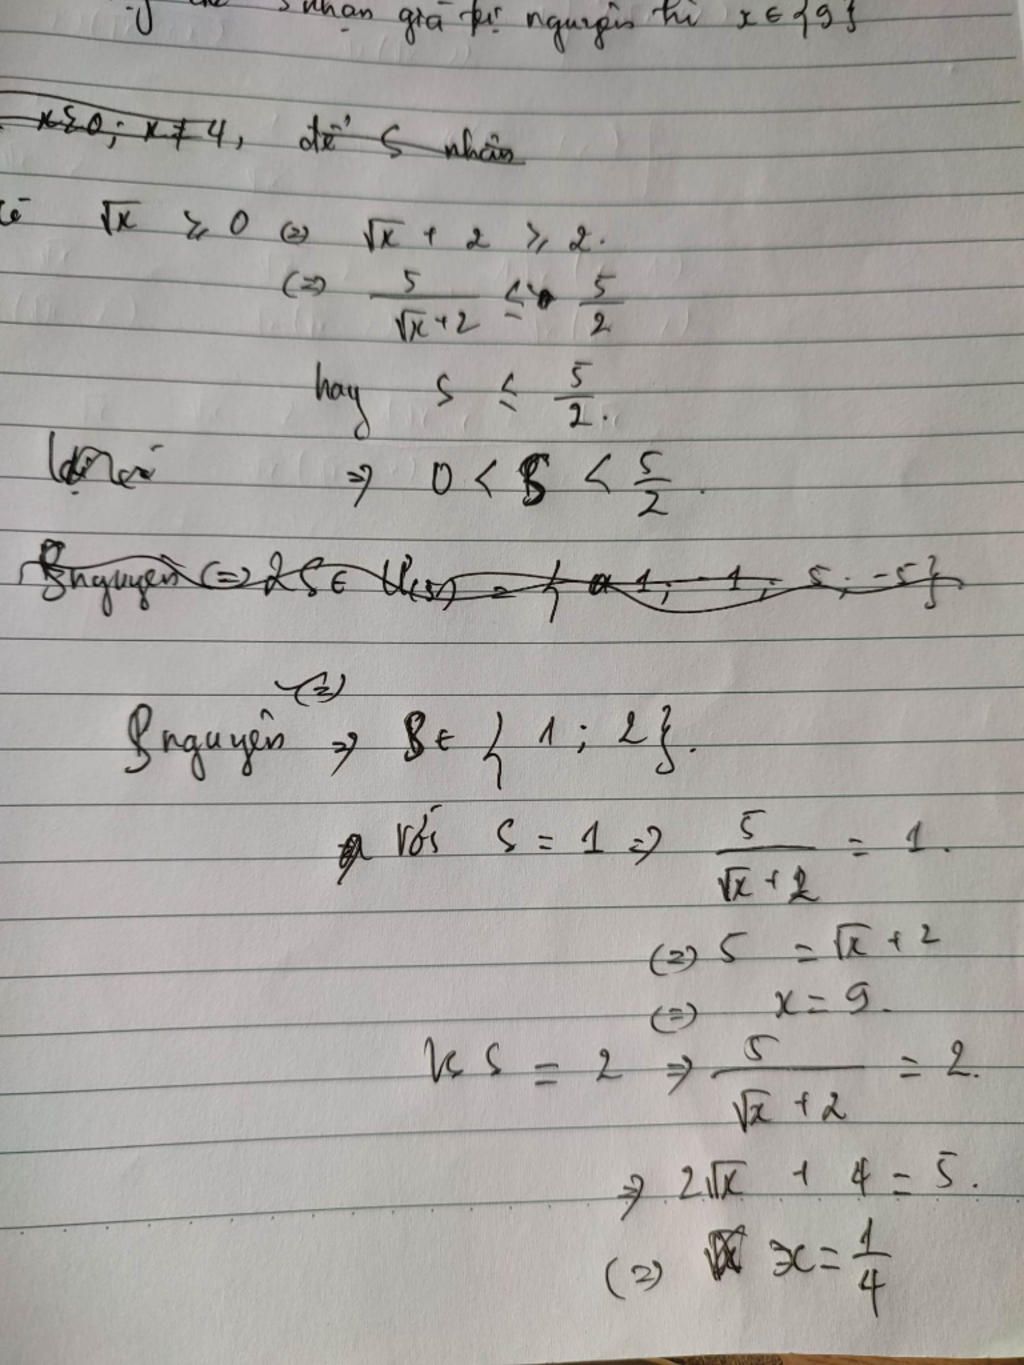 S nhận giá trị nguyên thì x ∈ {9}
x ≥ 0; x ≠ 4, để S nhận
√x ≥ 0 (=) √x + 2 ≥ 2.
(=) 5/(√x + 2) ≤ 5/2
hay S ≤ 5/2.
=> 0 < S < 5/2.
S nguyên (=) 2S ∈ Ư(5) = { 1; -1; 5; -5}
(=)
S nguyên => S ∈ { 1; 2}.
Với S = 1 => 5/(√x + 2) = 1.
(=) 5 = √x + 2
(=) x = 9.
Vs S = 2 => 5/(√x + 2) = 2.
=> 2√x + 4 = 5.
(=) x = 1/4